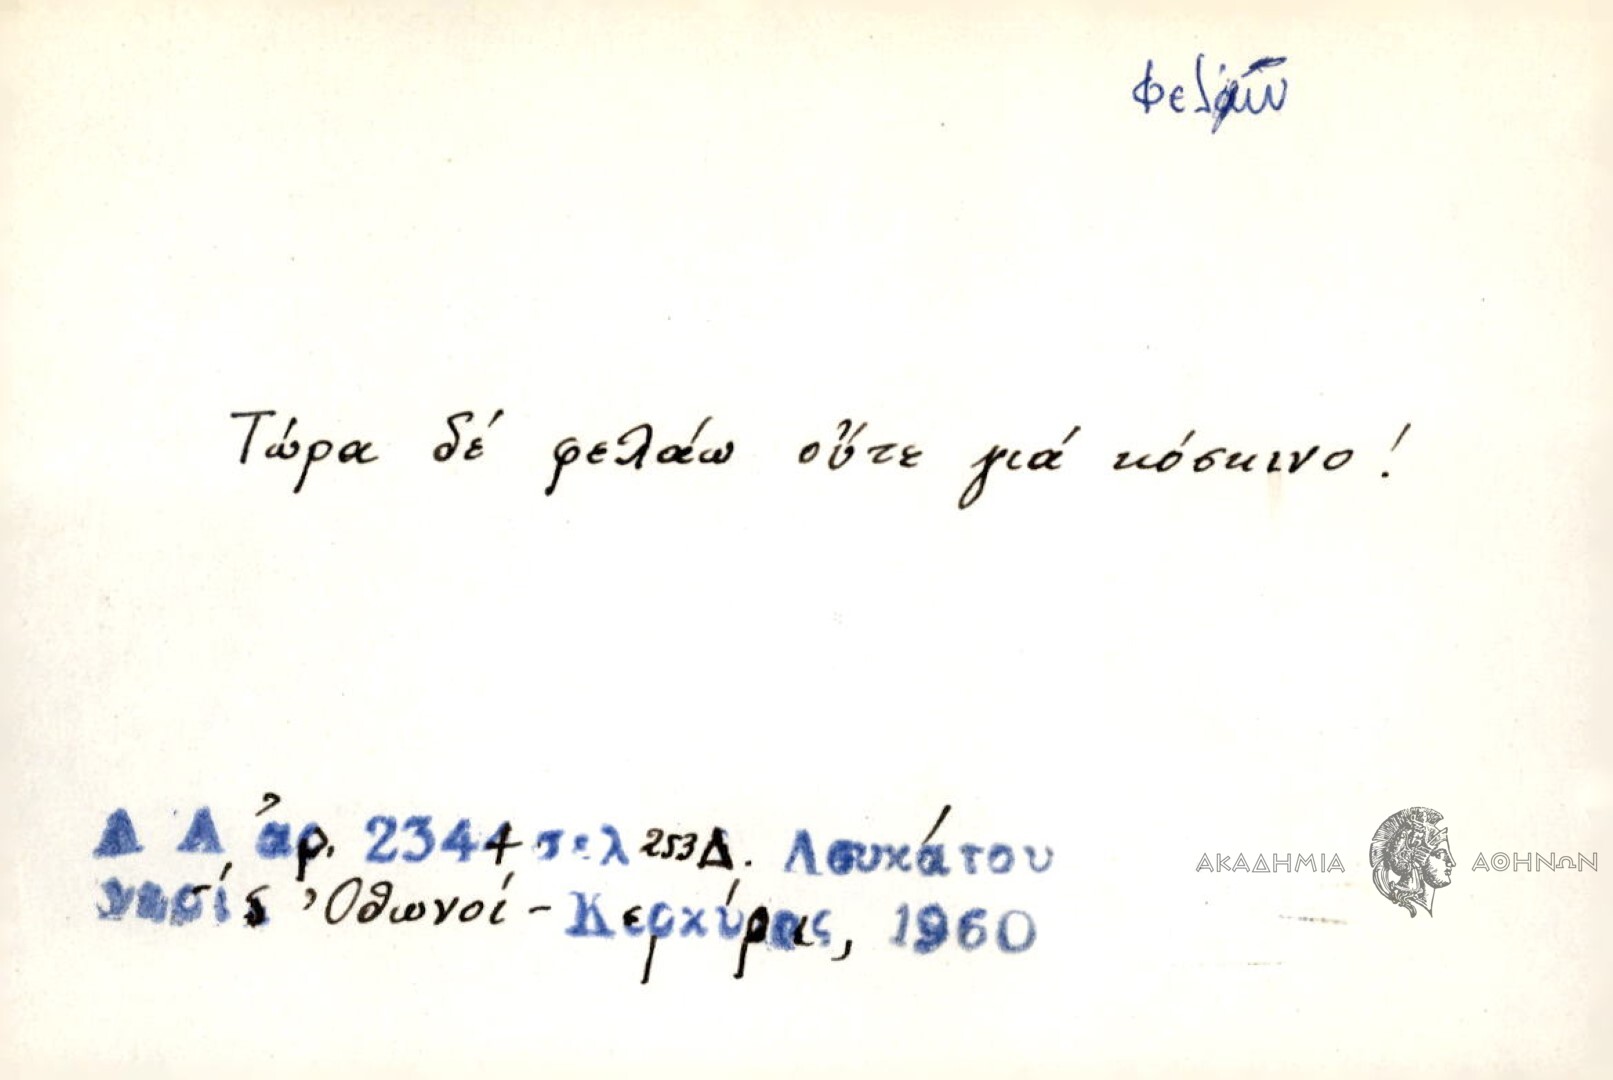 Φελῶ
Τώρα δέ φελάω οὔτε γιά κόσκινο!
Λ Α ἀρ. 2344 σελ 253 Δ. Λουκάτου
νησίς Ὀθωνοί - Κερκύρας, 1960
ΑΚΑΔΗΜΙΑ ΑΘΗΝΩΝ